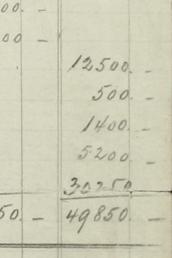 00. –
00 –
12500. –
500. –
1400. –
5200. –
30250.
50. – 49850. –